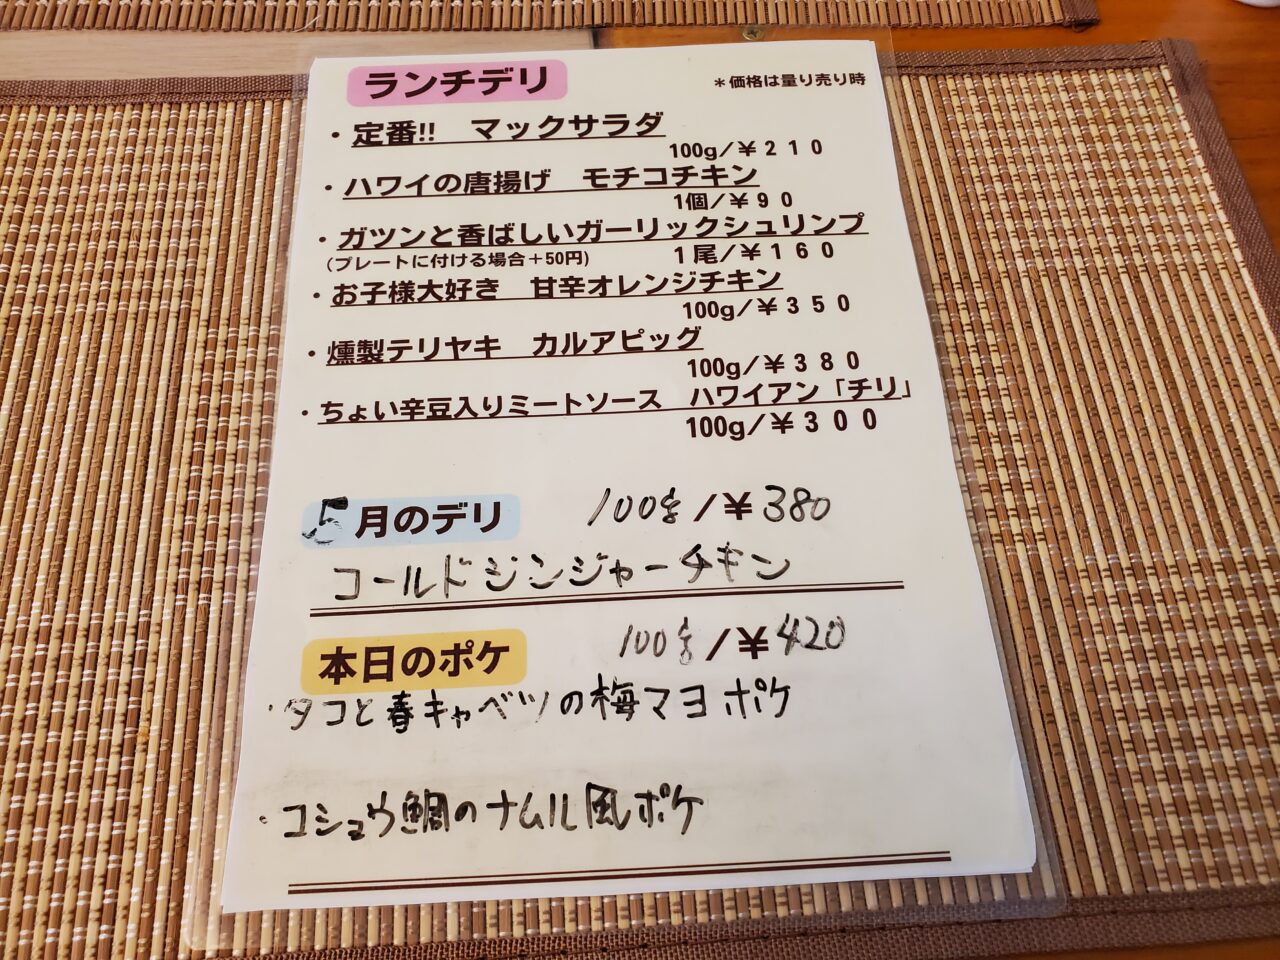 ランチデリ
＊価格は量り売り時
・定番!!　マックサラダ
100g／￥２１０
・ハワイの唐揚げ　モチコチキン
1個／￥９０
・ガツンと香ばしいガーリックシュリンプ
(プレートに付ける場合＋50円)　1尾／￥１６０
・お子様大好き　甘辛オレンジチキン
100g／￥３５０
・燻製テリヤキ　カルアピッグ
100g／￥３８０
・ちょい辛豆入りミートソース　ハワイアン「チリ」
100g／￥３００
5月のデリ　100g／￥380
コールドジンジャーチキン
本日のポケ　100g／￥420
・タコと春キャベツの梅マヨポケ
・コショウ鯛のナムル風ポケ